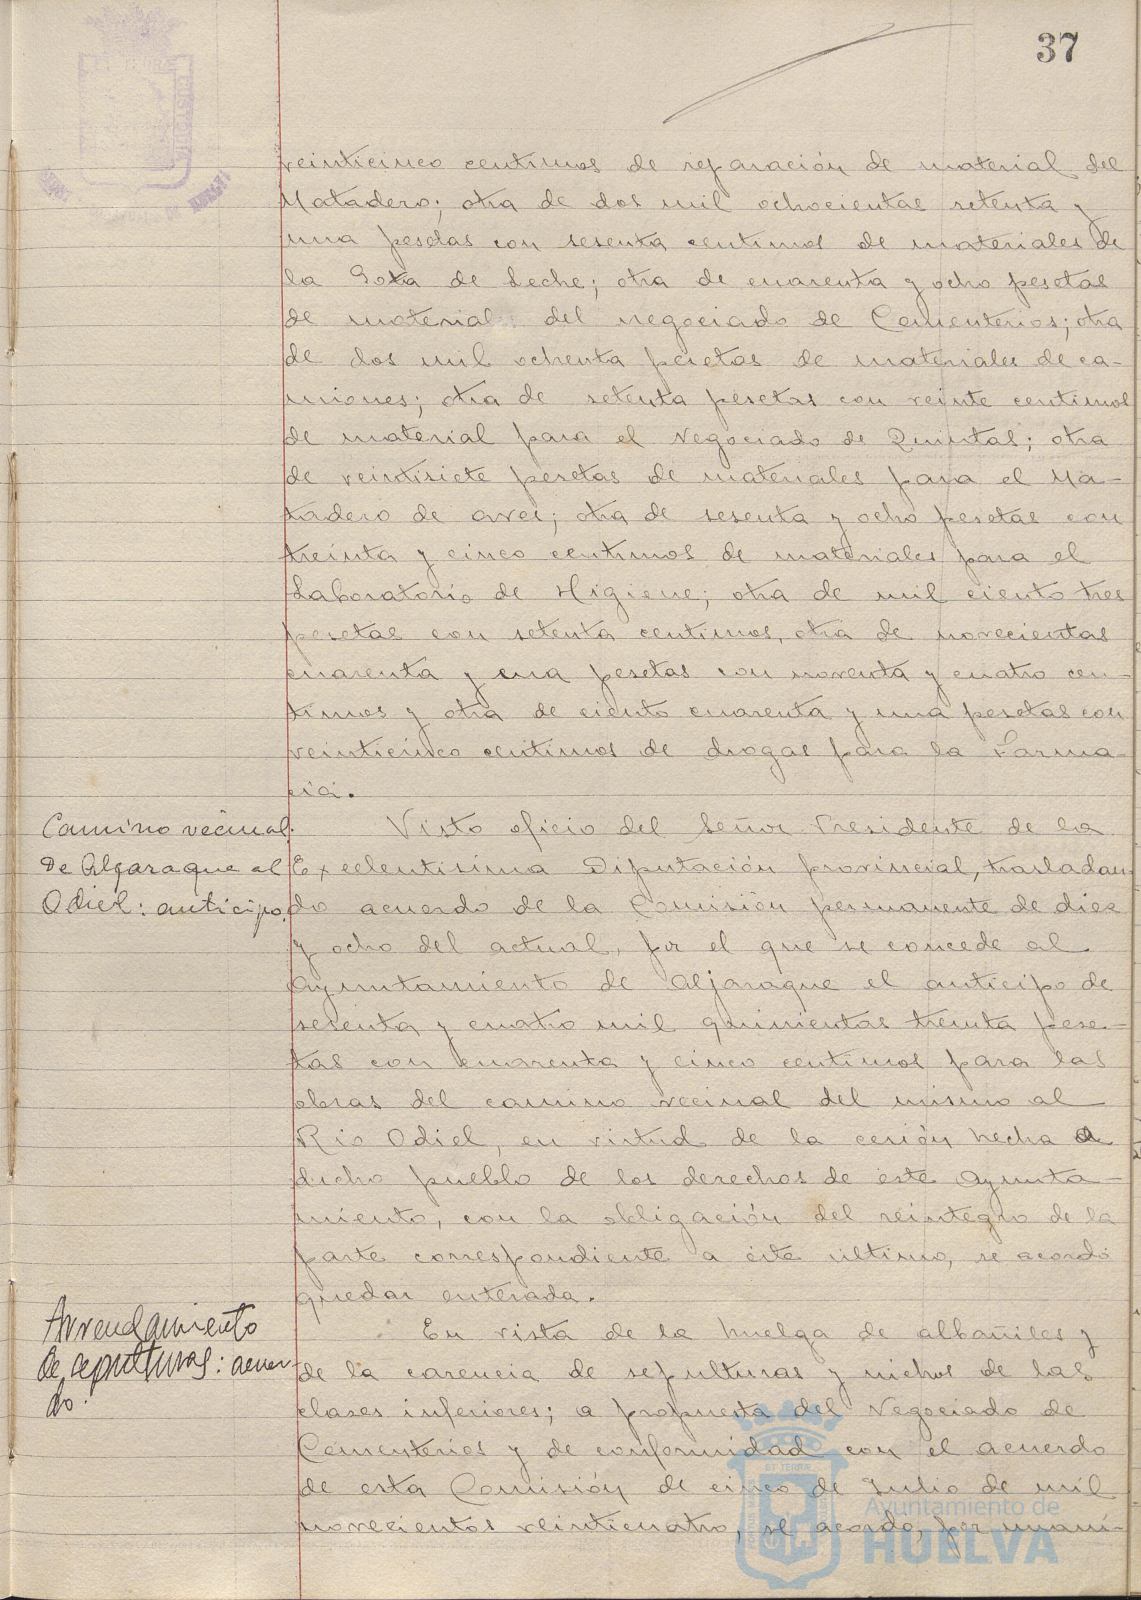 37
veinticinco centimos de reparación de material del
Matadero; otra de dos mil ochocientas setenta y
una pesetas con sesenta centimos de materiales de
la Gota de Leche; otra de cuarenta y ocho pesetas
de material del negociado de Cementerios; otra
de dos mil ochenta pesetas de materiales de ca-
miones; otra de setenta pesetas con veinte centimos
de material para el Negociado de Quintas; otra
de veintisiete pesetas de materiales para el Ma-
tadero de aves; otra de sesenta y ocho pesetas con
treinta y cinco centimos de materiales para el
Laboratorio de Higiene; otra de mil ciento tres
pesetas con setenta centimos, otra de novecientas
cuarenta y una pesetas con noventa y cuatro cen-
timos y otra de ciento cuarenta y una pesetas con
veinticinco centimos de drogas para la Farma-
cia.
Camino vecinal
de Aljaraque al
Odiel: anticipo.
Visto oficio del Señor Presidente de la
Excelentisima Diputación provincial, trasladan-
do acuerdo de la Comisión permanente de diez
y ocho del actual, por el que se concede al
Ayuntamiento de Aljaraque el anticipo de
sesenta y cuatro mil quinientas treinta pese-
tas con cuarenta y cinco centimos para las
obras del camino vecinal del mismo al
Rio Odiel, en virtud de la cesión hecha a
dicho pueblo de los derechos de este Ayunta-
miento, con la obligación del reintegro de la
parte correspondiente a éste ultimo, se acordó
quedar enterada.
Arrendamiento
de sepulturas: acuer-
do.
En vista de la huelga de albañiles y
de la carencia de sepulturas y nichos de las
clases inferiores; a propuesta del Negociado de
Cementerios y de conformidad con el acuerdo
de esta Comisión de cinco de Julio de mil
novecientos veinticuatro, se acordo, por unani-
Ayuntamiento de
HUELVA